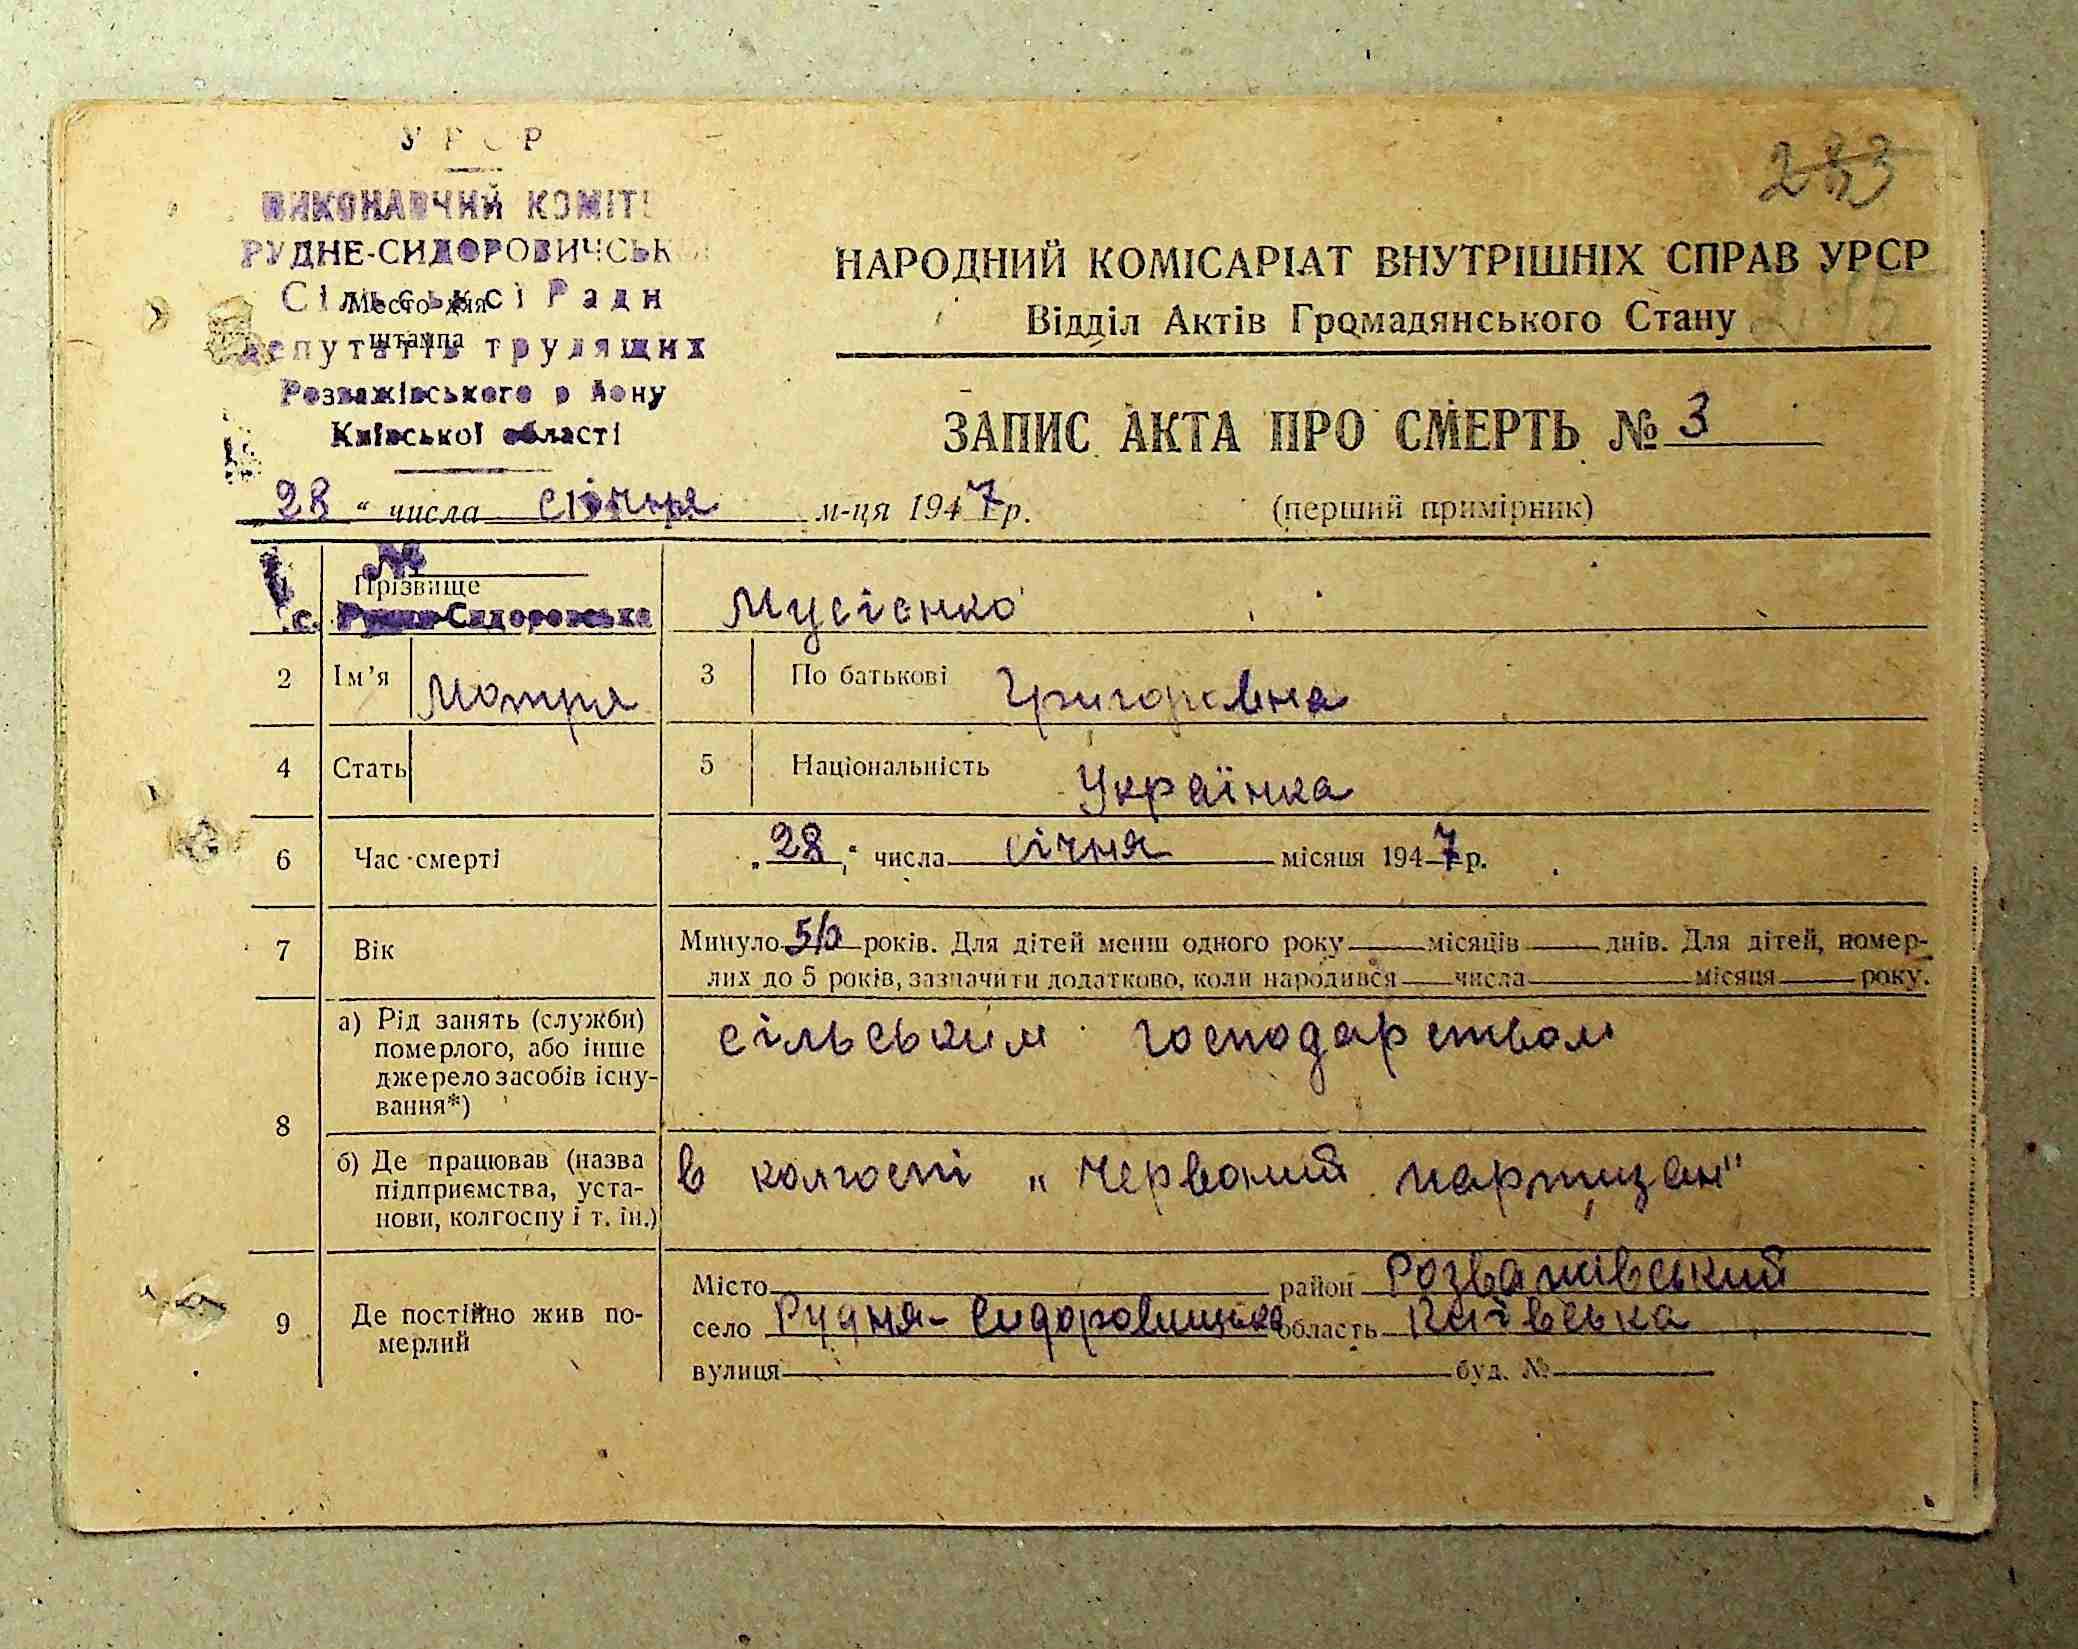 УРСР
ВИКОНАВЧИЙ КОМІТЕ
РУДНЕ-СИДОРОВИЧСЬК
Сільської Ради
Место для
штампа
депутатів трудящих
Розважівського р йону
Київської області
283
НАРОДНИЙ КОМІСАРІАТ ВНУТРІШНІХ СПРАВ УРСР
Відділ Актів Громадянського Стану
ЗАПИС АКТА ПРО СМЕРТЬ № 3
„28“ числа січня м-ця 1947 р.
(перший примірник)
№
Прізвище
с. Рудня-Сидоровська
Мусієнко
2 Ім'я Мотря 3 По батькові Григоровна
4 Стать 5 Національність Українка
6 Час смерті „28“ числа січня місяця 1947 р.
7 Вік Минуло років. Для дітей менш одного року місяців днів. Для дітей, помер-
лих до 5 років, зазначити додатково, коли народився числа місяця року.
8 а) Рід занять (служби)
померлого, або інше
джерело засобів існу-
вання*)
сільським господарством
б) Де працював (назва
підприємства, уста-
нови, колгоспу і т. ін.)
в колгоспі „Червоний партизан"
9 Де постійно жив по-
мерлий
Місто район Розважівський
село Рудня- область Київська
вулиця буд. №